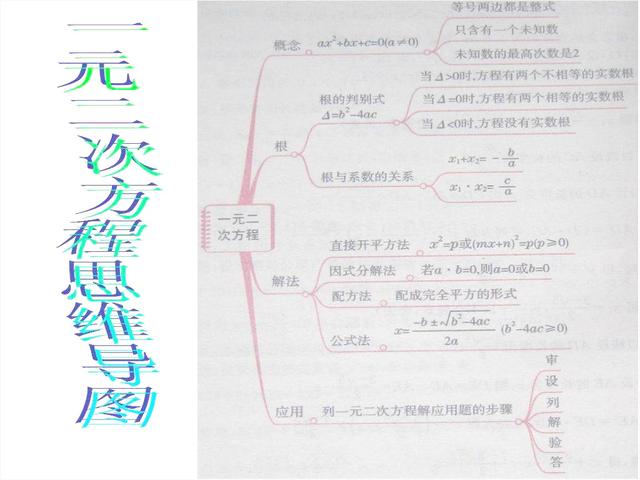 一元二次方程思维导图
一元二
次方程
概念
ax²+bx+c=0(a≠0)
等号两边都是整式
只含有一个未知数
未知数的最高次数是2
根
根的判别式
Δ=b²-4ac
当Δ>0时,方程有两个不相等的实数根
当Δ=0时,方程有两个相等的实数根
当Δ<0时,方程没有实数根
根与系数的关系
x₁+x₂= - b/a
x₁·x₂= c/a
解法
直接开平方法
x²=p或(mx+n)²=p(p≥0)
因式分解法
若a·b=0,则a=0或b=0
配方法
配成完全平方的形式
公式法
x= -b±√b²-4ac / 2a (b²-4ac≥0)
应用
列一元二次方程解应用题的步骤
审
设
列
解
验
答